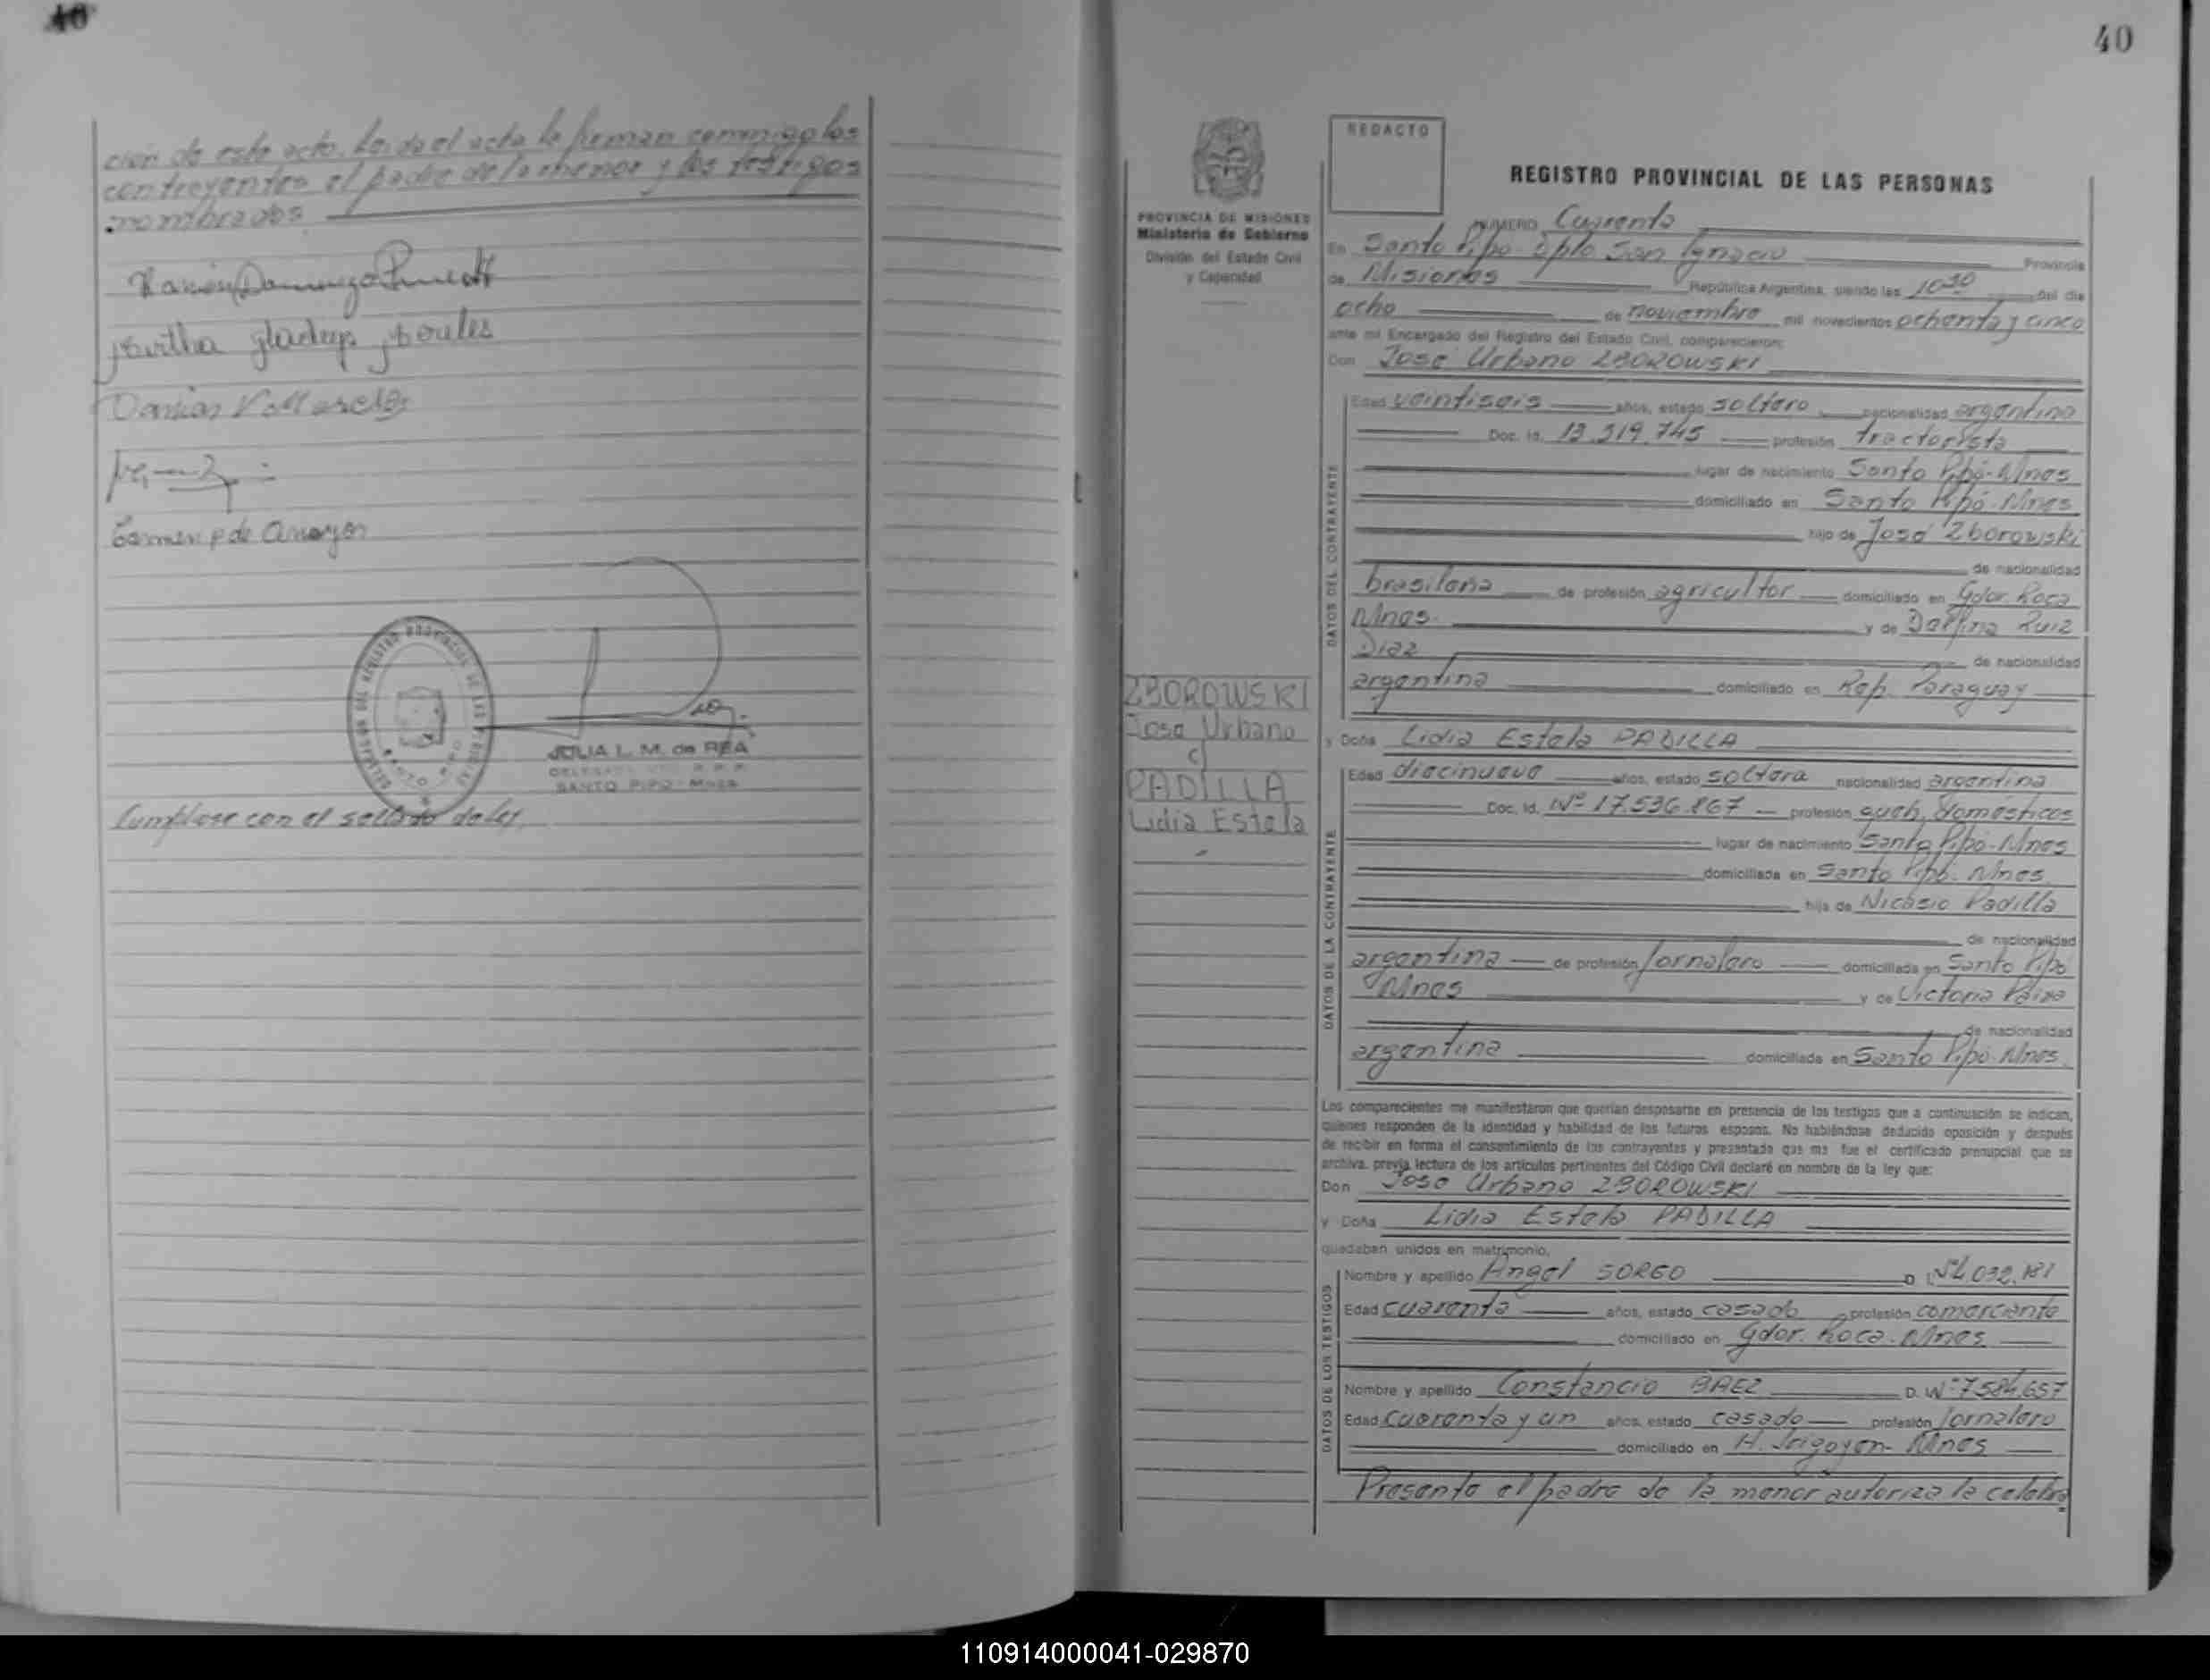 40
ción de este acto. Leída el acta la firman conmigo los
contrayentes el padre de la menor y los testigos
nombrados
Ramón Domingo
gladys
Damian
Carmen p de
JULIA L. M. de REA
SANTO PIPO - Mnes
Cumplase con el sellado de ley.
40
REDACTO
PROVINCIA DE MISIONES
Ministerio de Gobierno
División del Estado Civil
y Capacidad
ZBOROWSKI
Jose Urbano
c/
PADILLA
Lidia Estela
REGISTRO PROVINCIAL DE LAS PERSONAS
NUMERO Cuarenta
En Santo Pipo - Dpto San Ignacio Provincia
de Misiones República Argentina, siendo las 10 30 del día
ocho de noviembre mil novecientos ochenta y cinco
ante mí Encargado del Registro del Estado Civil, comparecieron:
Don José Urbano ZBOROWSKI
DATOS DEL CONTRAYENTE
Edad veintiseis años, estado soltero nacionalidad argentina
Doc. Id. 13.319.745 profesión tractorista
lugar de nacimiento Santo Pipó - Mnes
domiciliado en Santo Pipó - Mnes
hijo de José Zborowski
de nacionalidad
brasileña de profesión agricultor domiciliado en Gdor. Roca
Mnes. y de Delfina Ruiz
Diaz de nacionalidad
argentina domiciliado en Rep. Paraguay
y Doña Lidia Estela PADILLA
DATOS DE LA CONTRAYENTE
Edad diecinueve años, estado soltera nacionalidad argentina
Doc. Id. Nº 17.536.867 profesión queh. domesticos
lugar de nacimiento Santo Pipó - Mnes
domiciliada en Santo Pipó - Mnes
hija de Nicasio Padilla
de nacionalidad
argentina de profesión jornalero domiciliado en Santo Pipó
Mnes y de Victoria
de nacionalidad
argentina domiciliada en Santo Pipó - Mnes
Los comparecientes me manifestaron que querían desposarse en presencia de los testigos que a continuación se indican,
quienes responden de la identidad y habilidad de los futuros esposos. No habiéndose deducido oposición y después
de recibir en forma el consentimiento de los contrayentes y presentado que me fue el certificado prenupcial que se
archiva, previa lectura de los artículos pertinentes del Código Civil declaré en nombre de la ley que:
Don Jose Urbano ZBOROWSKI
y Doña Lidia Estela PADILLA
quedaban unidos en matrimonio.
DATOS DE LOS TESTIGOS
Nombre y apellido Angel SORGO D. I.
Edad cuarenta años, estado casado profesión comerciante
domiciliado en Gdor. Roca - Mnes
Nombre y apellido Constancio BAEZ D. Nº 7.584.657
Edad cuarenta y un años, estado casado profesión jornalero
domiciliado en H. Irigoyen - Mnes
Presente el padre de la menor autoriza la celebra
110914000041-029870